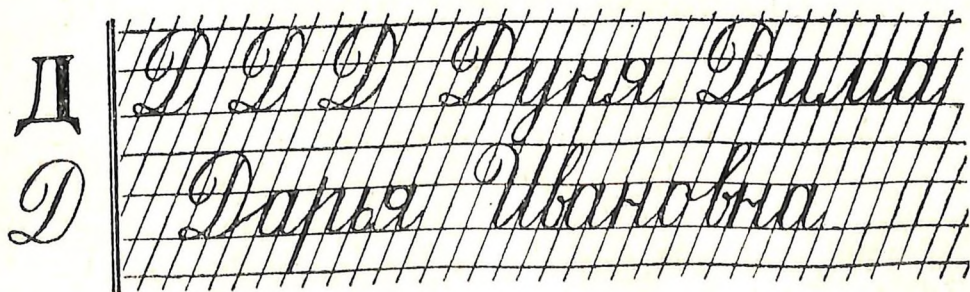 Д Д Д Д Дуня Дима
Д Дарья Ивановна